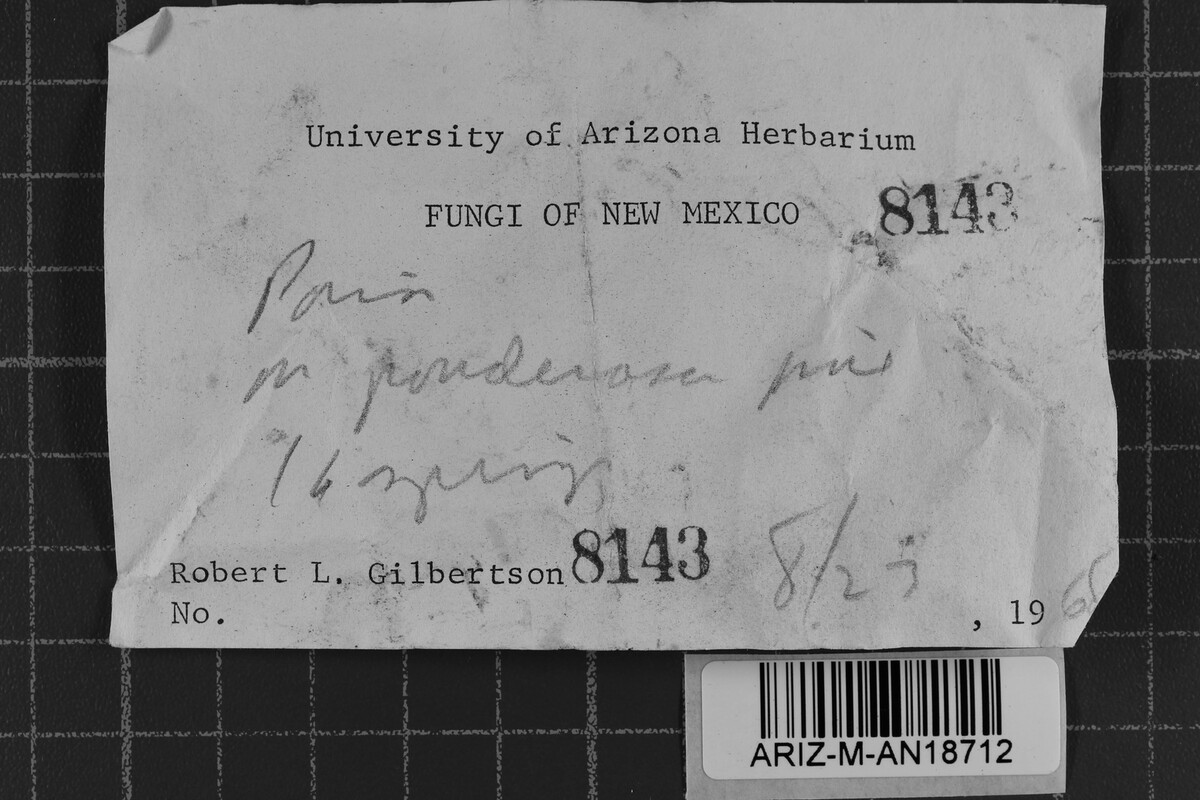 University of Arizona Herbarium
FUNGI OF NEW MEXICO 8143
Poria
on ponderosa pine
16 springs
Robert L. Gilbertson 8143 8/23
No. , 19 68
ARIZ-M-AN18712